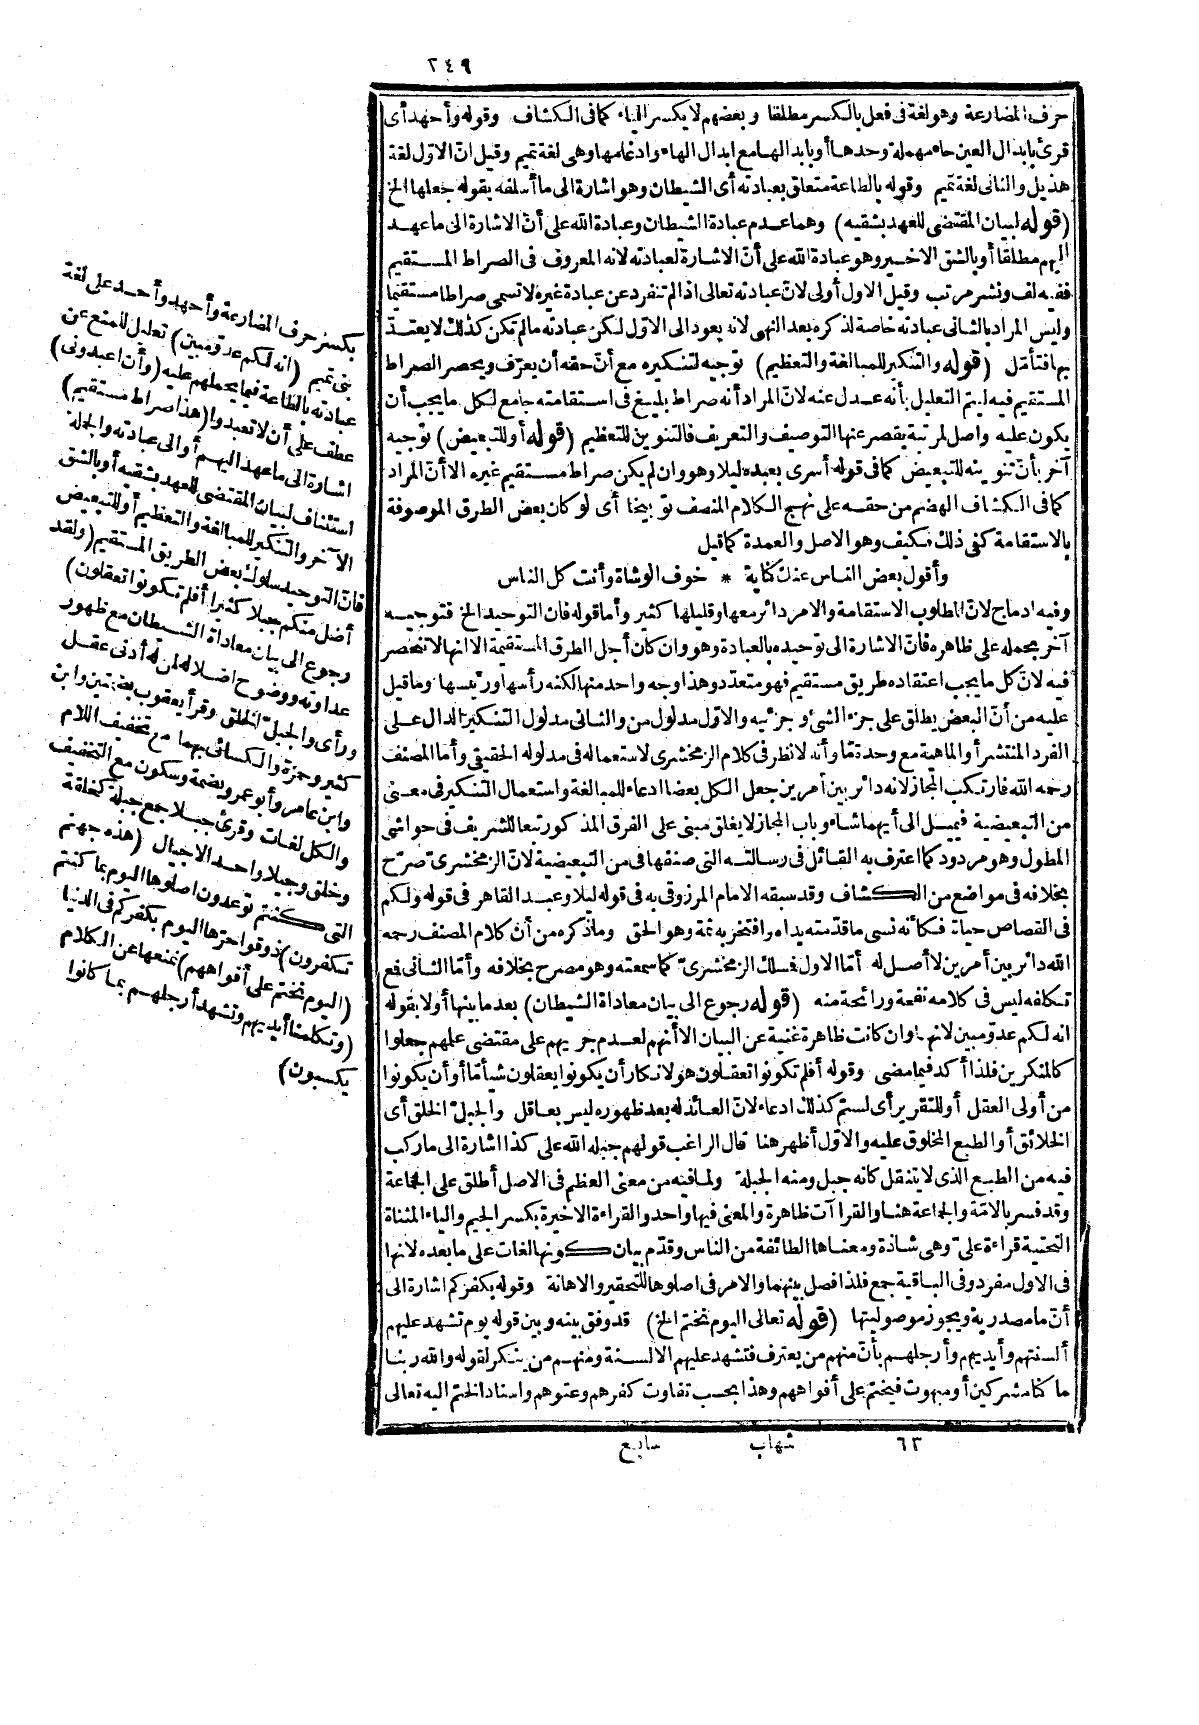 ٢٤٩
حرف المضارعة وهو لغة فى فعل بالكسر مطلقا وبعضهم لا يكسر الياء كما فى الكشاف وقوله وأحهد أى
قرئ بابدال العين حاء مهملة وحدها أو بابدالها مع ابدال الهاء وادغامها وهى لغة تميم وقيل انّ الاوّل لغة
هذيل والثانى لغة تميم وقوله بالطاعة متعلق بعبادته أى الشيطان وهو اشارة الى ما أسلفه بقوله جعلها الخ
(قوله لبيان المقتضى للعهد بشقيه) وهما عدم عبادة الشيطان وعبادة الله على أنّ الاشارة الى ما عهد
اليهم مطلقا أو بالشق الاخير وهو عبادة الله على أنّ الاشارة لعبادته لانه المعروف فى الصراط المستقيم
ففيه لف ونشر مرتب وقيل الاول أولى لانّ عبادته تعالى اذا لم تنفرد عن عبادة غيره لا تسمى صراطا مستقيما
وليس المراد بالثانى عبادته خاصة لذكره بعد النهى لانه يعود الى الاوّل لكن عبادته مالم تكن كذلك لا يعتدّ
بها فتأمّل (قوله والتنكير للمبالغة والتعظيم) توجيه لتنكيره مع أنّ حقه أن يعرّف ويحصر الصراط
المستقيم فيه ليتم التعليل بأنه عدل عنه لانّ المراد أنه صراط بليغ فى استقامته جامع لكل ما يجب أن
يكون عليه واصل لمرتبة يقصر عنها التوصيف والتعريف فالتنوين للتعظيم (قوله أو للتبعيض) توجيه
آخر بأنّ تنوينه للتبعيض كما فى قوله أسرى بعبده ليلا وهو وان لم يكن صراط مستقيم غيره الا أنّ المراد
كما فى الكشاف الهضم من حقه على نهج الكلام المنصف توبيخا أى لو كان بعض الطرق الموصوفة
بالاستقامة كفى ذلك فكيف وهو الاصل والعمدة كما قيل
وأقول بعض الناس عنك كناية * خوف الوشاة وأنت كل الناس
وفيه ادماج لانّ المطلوب الاستقامة والامر دائر معها وقليلها كثير وأما قوله فان التوحيد الخ فتوجيه
آخر بحمله على ظاهره فانّ الاشارة الى توحيده بالعبادة وهو وان كان أجل الطرق المستقيمة الا انها لا تنحصر
فيه لانّ كل ما يجب اعتقاده طريق مستقيم فهو متعدّد وهذا وجه واحد منها لكنه رأسها ورئيسها وما قيل
عليه من أنّ البعض يطلق على جزء الشئ وجزئيه والاوّل مدلول من والثانى مدلول التنكير الدال على
الفرد المنتشر أو الماهية مع وحدة مّا وأنه لا نظر فى كلام الزمخشرى لاستعماله فى مدلوله الحقيقى وأما المصنف
رحمه الله فارتكب المجاز لانه دائر بين أمرين جعل الكل بعضا ادعاء للمبالغة واستعمال التنكير فى معنى
من التبعيضية فيميل الى أيهما شاء وباب المجاز لا يغلق مبنى على الفرق المذكور تبعا للشريف فى حواشى
المطول وهو مردود كما اعترف به القائل فى رسالته التى صنفها فى من التبعيضية لانّ الزمخشرىّ صرّح
بخلافه فى مواضع من الكشاف وقد سبقه الامام المرزوقى به فى قوله ليلا وعبد القاهر فى قوله ولكم
فى القصاص حياة فكأنه نسى ما قدّمته يداه وافتخر به ثمة وهو الحق وما ذكره من أنّ كلام المصنف رحمه
الله دائر بين أمرين لا أصل له أمّا الاول فسلك الزمخشرىّ كما سمعته وهو مصرح بخلافه وأمّا الثانى فع
تكلفه ليس فى كلامه نفعة ورائحة منه (قوله رجوع الى بيان معاداة الشيطان) بعد ما بينها أولا بقوله
انه لكم عدوّ مبين لانها وان كانت ظاهرة غنية عن البيان الا أنهم لعدم جريهم على مقتضى علمهم جعلوا
كالمنكرين فلذا أكد فيما مضى وقوله أفلم تكونوا تعقلون هو لانكار أن يكونوا يعقلون شيأ مّا أو أن يكونوا
من أولى العقل أو للتقرير أى لستم كذلك ادعاء لانّ العائد له بعد ظهوره ليس بعاقل والجبل الخلق أى
الخلائق أو الطبع المخلوق عليه والاوّل أظهر هنا قال الراغب قولهم جبله الله على كذا اشارة الى ما ركب
فيه من الطبع الذى لا يتنقل كانه جبل ومنه الجبلة ولما فيه من معنى العظم فى الاصل أطلق على الجماعة
وقد فسر بالامّة والجماعة هنا والقراآت ظاهرة والمعنى فيها واحد والقراءة الاخيرة بكسر الجيم والياء المثناة
التحتية قراءة علىّ وهى شاذة ومعناها الطائفة من الناس وقدّم بيان كونها لغات على ما بعده لانها
فى الاول مفرد وفى الباقية جمع فلذا فصل بينهما والامر فى اصلوها للتحقير والاهانة وقوله بكفركم اشارة الى
أنّ ما مصدرية ويجوز موصوليتها (قوله تعالى اليوم نختم الخ) قد وفق بينه وبين قوله يوم تشهد عليهم
ألسنتهم وأيديهم وأرجلهم بأنّ منهم من يعترف فتشهد عليهم الالسنة ومنهم من ينكر لقوله والله ربنا
ما كنا مشركين أو مبهوت فيختم على أفواههم وهذا بحسب تفاوت كفرهم وعتوهم واسناد الختم اليه تعالى
٦٣ شهاب سابع
بكسر حرف المضارعة وأحهد وأحد على لغة
بنى تميم (انه لكم عدوّ مبين) تعليل للمنع عن
عبادته بالطاعة فيما يحملهم عليه (وأن اعبدونى)
عطف على أن لا تعبدوا (هذا صراط مستقيم)
اشارة الى ما عهد اليهم أو الى عبادته والجملة
استئناف لبيان المقتضى للعهد بشقيه أو بالشق
الآخر والتنكير للمبالغة والتعظيم أو للتبعيض
فانّ التوحيد سلوك بعض الطريق المستقيم (ولقد
أضل منكم جبلا كثيرا أفلم تكونوا تعقلون)
رجوع الى بيان معاداة الشيطان مع ظهور
عداوته ووضوح اضلاله لمن له أدنى عقل
ورأى والجبل الخلق وقرأ يعقوب بضمتين وابن
كثير وحمزة والكسائى بهما مع تخفيف اللام
وابن عامر وأبو عمرو بضمة وسكون مع التخفيف
والكل لغات وقرئ جبلا جمع جبلة كخلقة
وخلق وجيلا واحد الاجيال (هذه جهنم
التى كنتم توعدون اصلوها اليوم بما كنتم
تكفرون) ذوقوا حرّها اليوم بكفركم فى الدنيا
(اليوم نختم على أفواههم) نمنعها عن الكلام
(وتكلمنا أيديهم وتشهد أرجلهم بما كانوا
يكسبون)